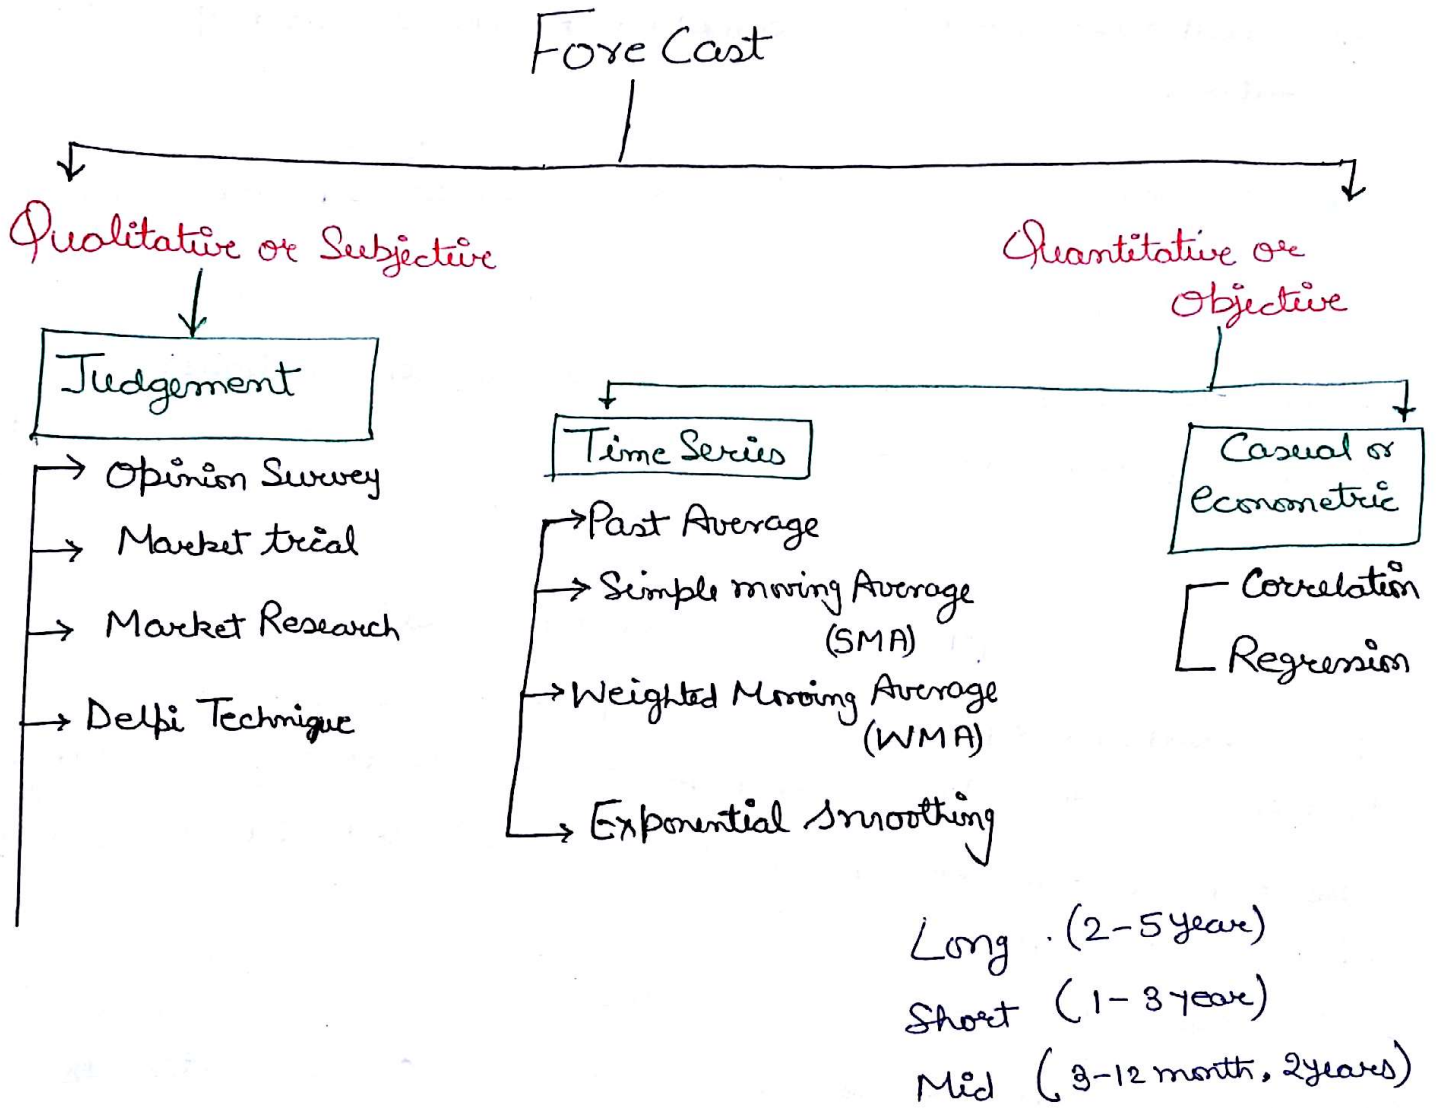 Fore Cast
Qualitative or Subjective
Judgement
Opinion Survey
Market trial
Market Research
Delpi Technique
Quantitative or
Objective
Time Series
Past Average
Simple moving Average
(SMA)
Weighted Moving Average
(WMA)
Exponential smoothing
Casual or
econometric
Correlation
Regression
Long (2-5 year)
Short (1-3 year)
Mid (3-12 month, 2years)